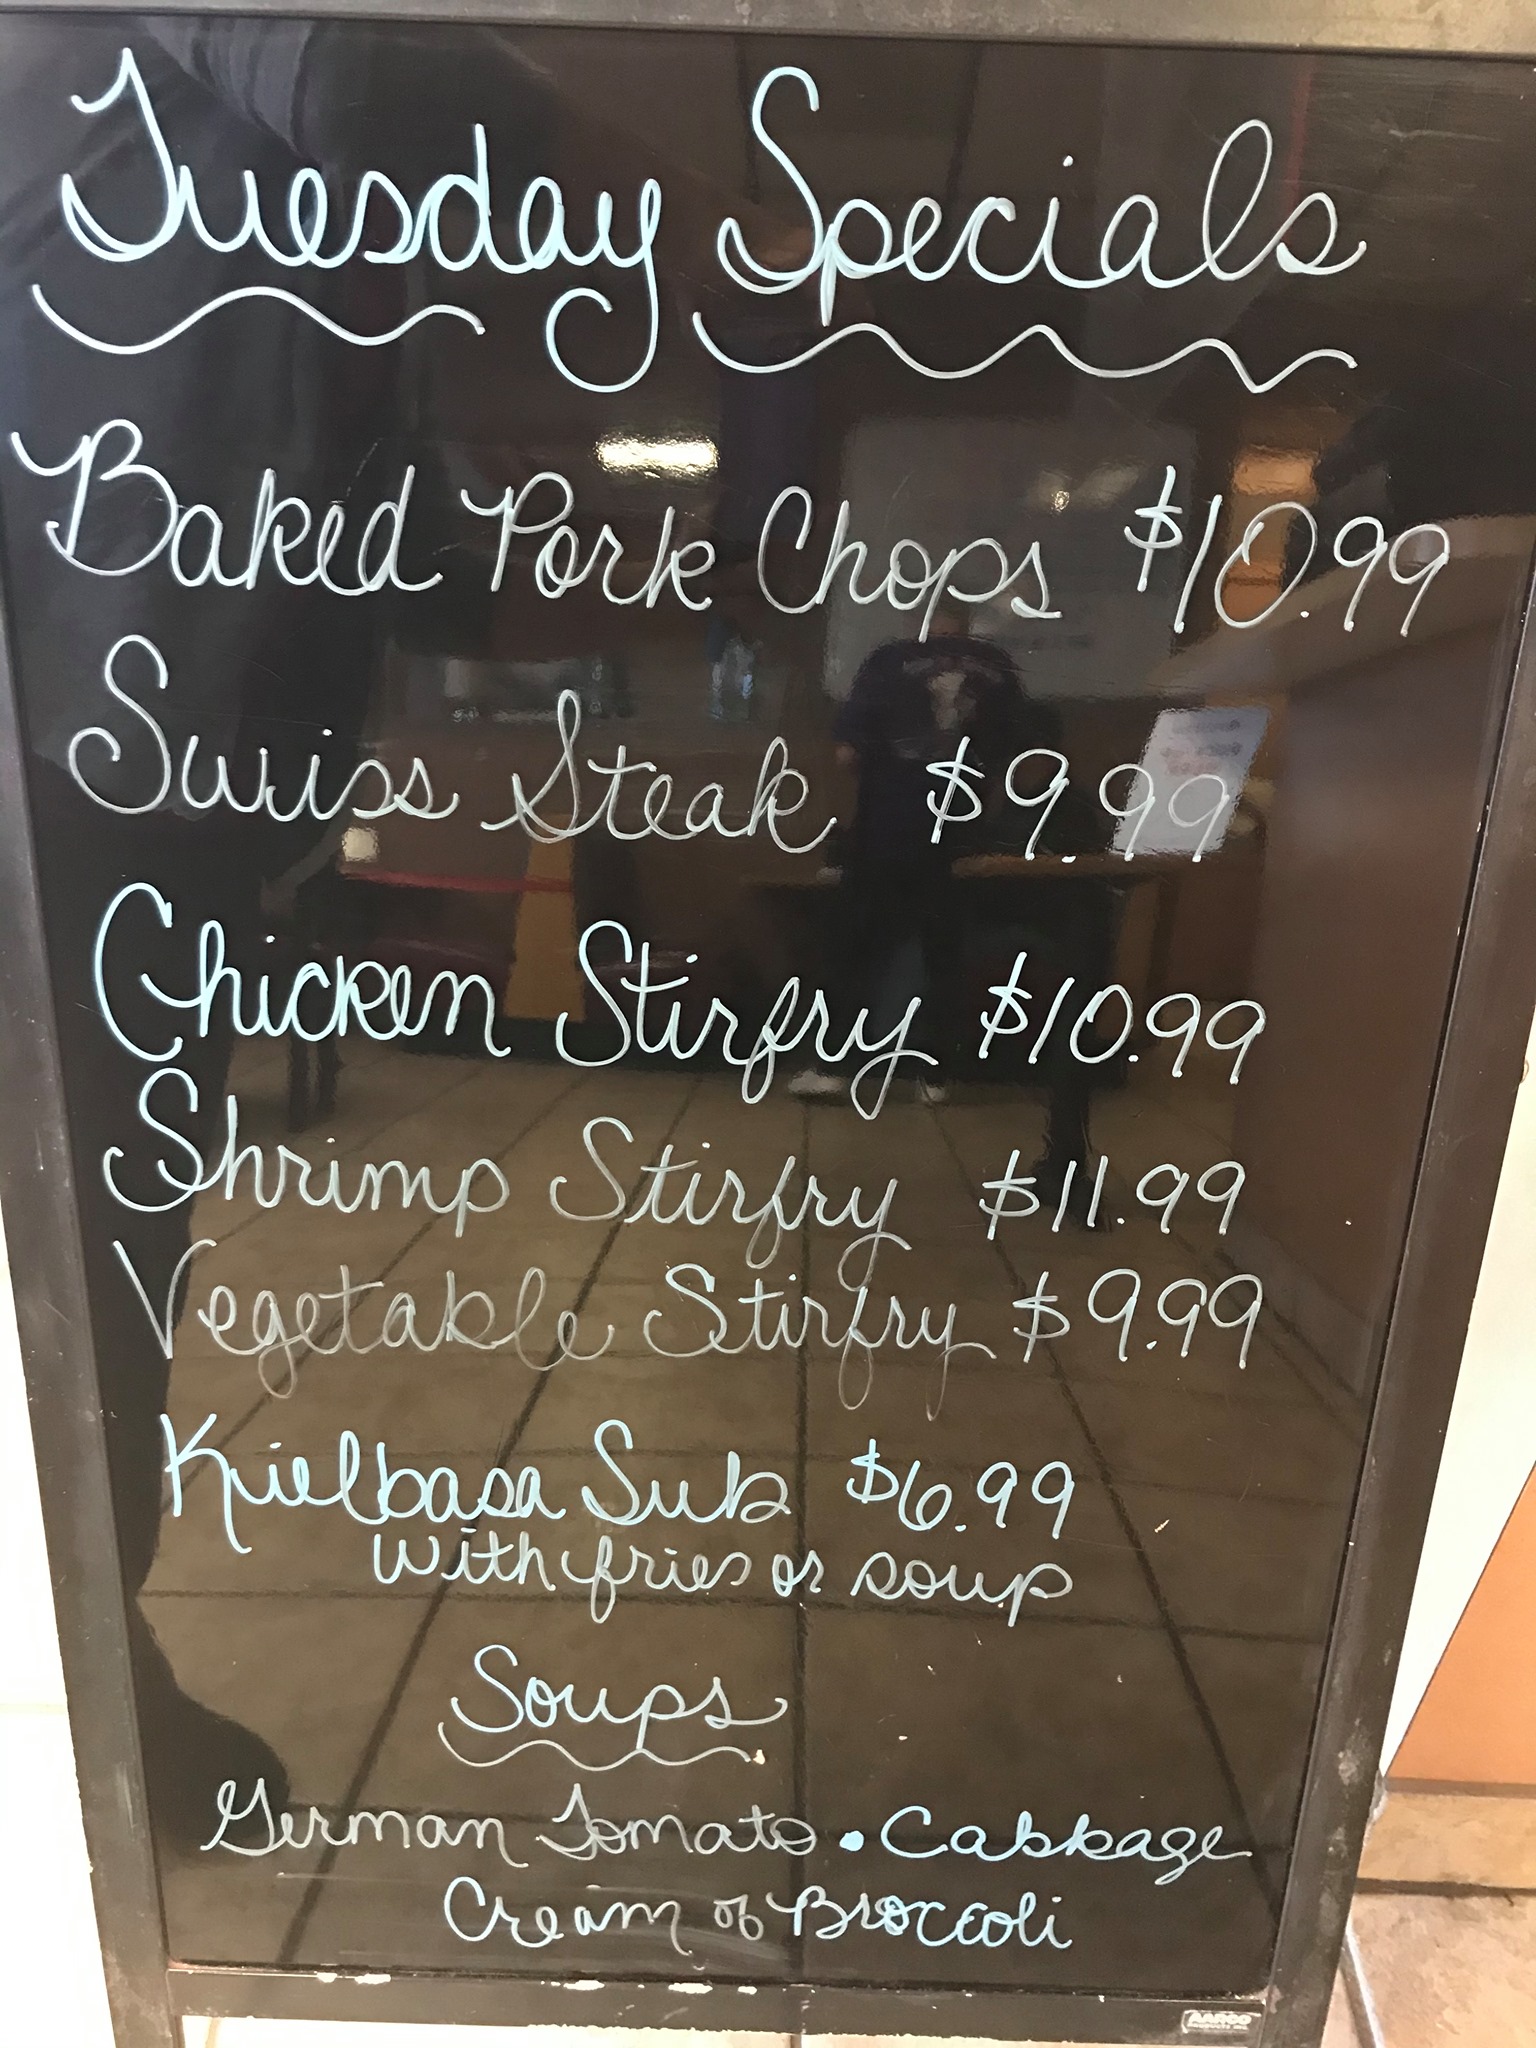 Tuesday Specials
Baked Pork Chops $10.99
Swiss Steak $9.99
Chicken Stirfry $10.99
Shrimp Stirfry $11.99
Vegetable Stirfry $9.99
Kielbasa Sub $6.99
with fries or soup
Soups
German Tomato • Cabbage
Cream of Broccoli
AARCO